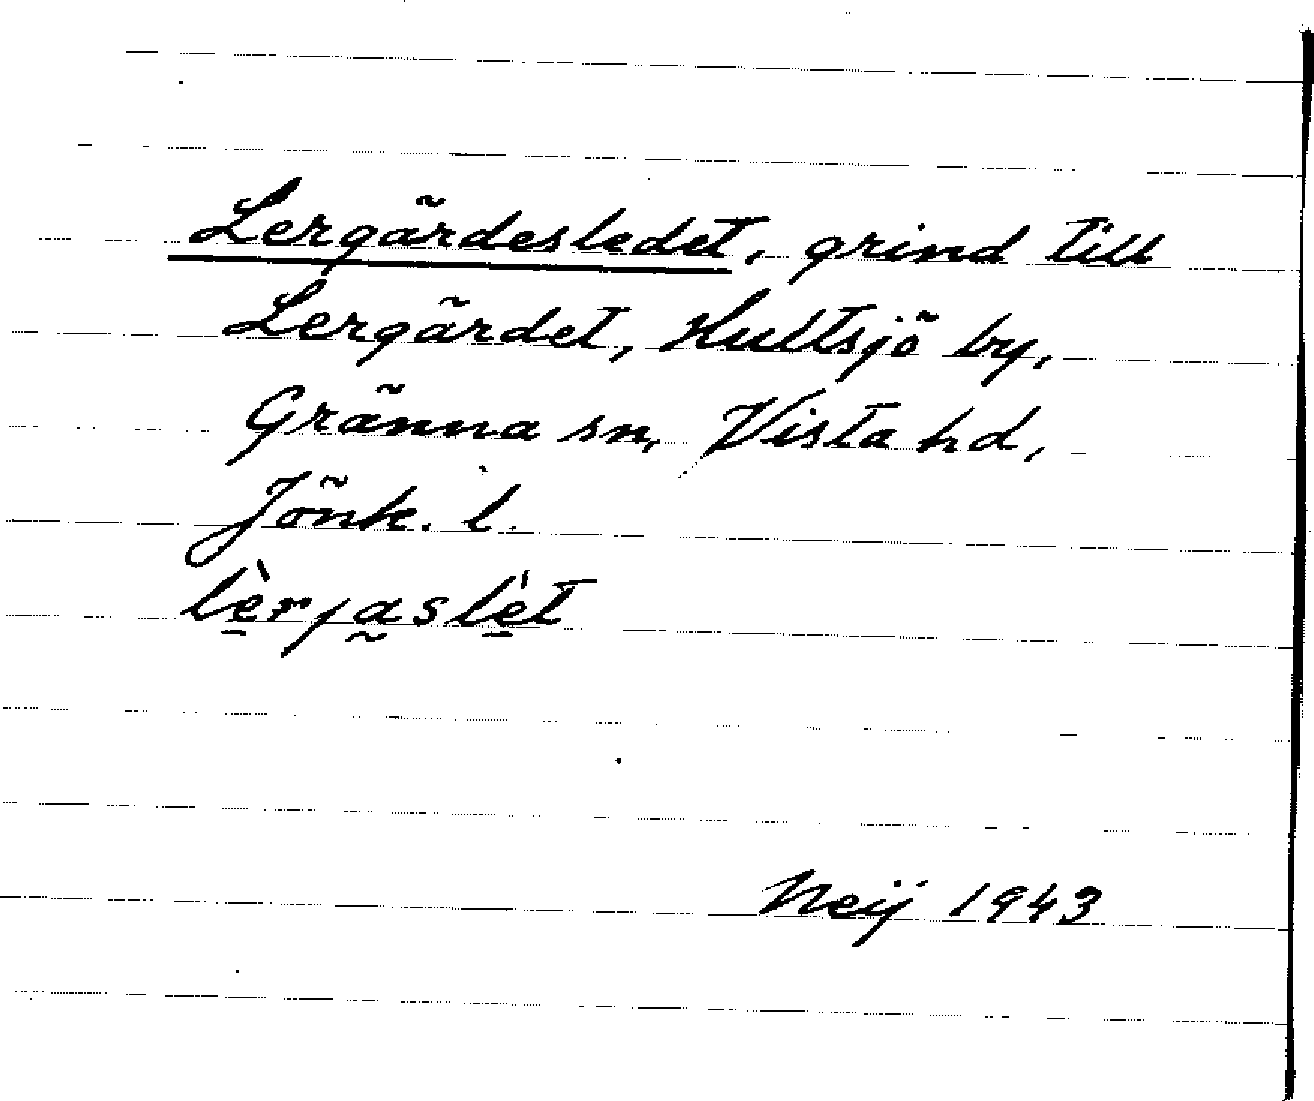 Lergärdesledet, grind till
Lergärdet, Hultsjö by,
Gränna sn, Vista hd,
Jönk. l.
lèrjaslét
Neij 1943